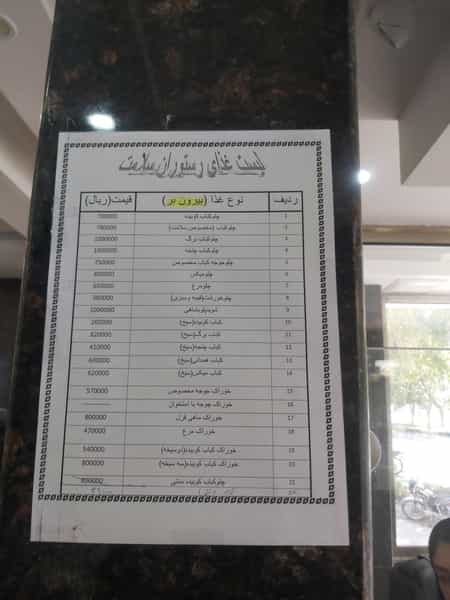 لیست غذای رستوران سلامت
ردیف نوع غذا (بیرون بر) قیمت(ریال)
1 چلوکباب کوبیده 700000
2 چلوکباب (مخصوص سلامت) 780000
3 چلوکباب برگ
4 چلوکباب پنجه
5 چلوجوجه کباب مخصوص 750000
6 چلومیکس
7 چلومرغ
8 چلوخورشت(قیمه و سبزی)
9 1000000
10 کباب کوبیده(سیخ)
11 کباب برگ(سیخ) 820000
12 کباب پنجه(سیخ) 410000
13 کباب همدانی(سیخ)
14 کباب میکس(سیخ) 620000
15 خوراک جوجه مخصوص 570000
16 خوراک جوجه با استخوان
17 خوراک ماهی قزل 800000
18 خوراک مرغ 470000
19 خوراک کباب کوبیده(دوسیخه) 540000
20 خوراک کباب کوبیده(سه سیخه) 800000
21 چلوکباب کوبیده سنتی